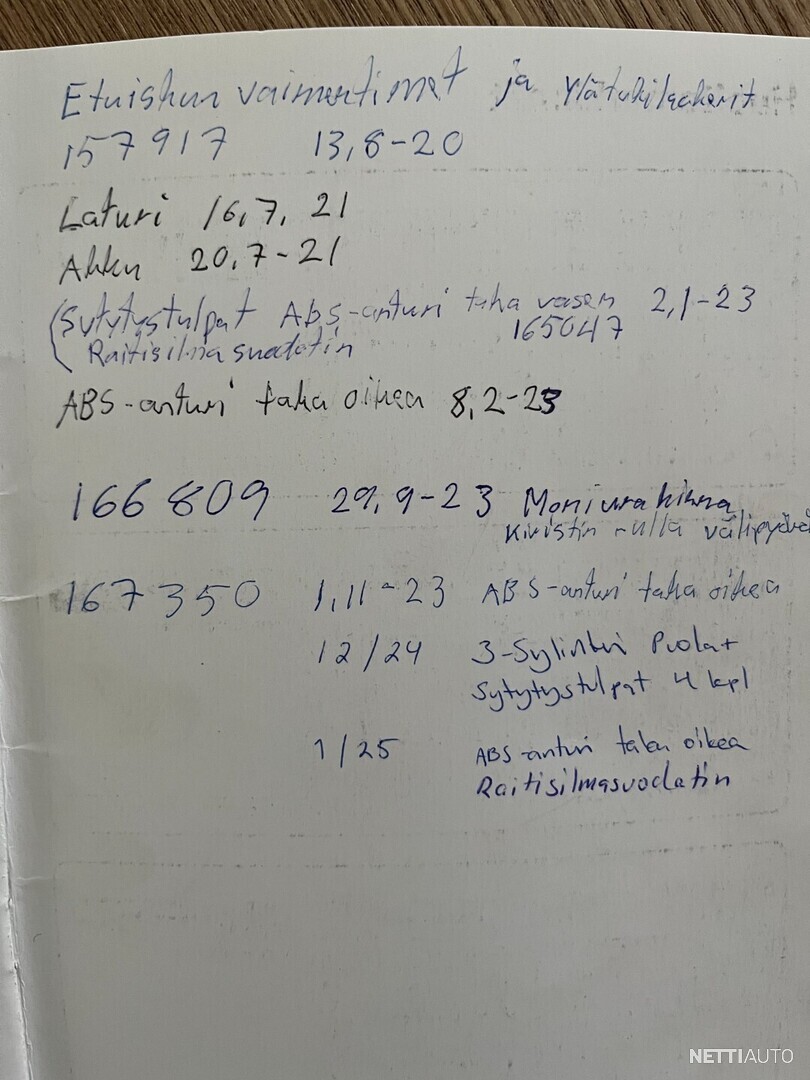 Etuiskun vaimentimet ja ylätukilaakerit
157917 13,8-20
Laturi 16,7, 21
Akku 20,7-21
(Sytytystulpat ABS-anturi taka vasen 2,1-23
165047
Raitisilmasuodatin
ABS-anturi taka oikea 8,2-23
166809 29,9-23 Moniurahihna
Kiristin rulla välipyörä
167350 1,11-23 ABS-anturi taka oikea
12/24 3-Sylinteri Puolat
Sytytystulpat 4 kpl
1/25 ABS-anturi taka oikea
Raitisilmasuodatin
NETTIAUTO